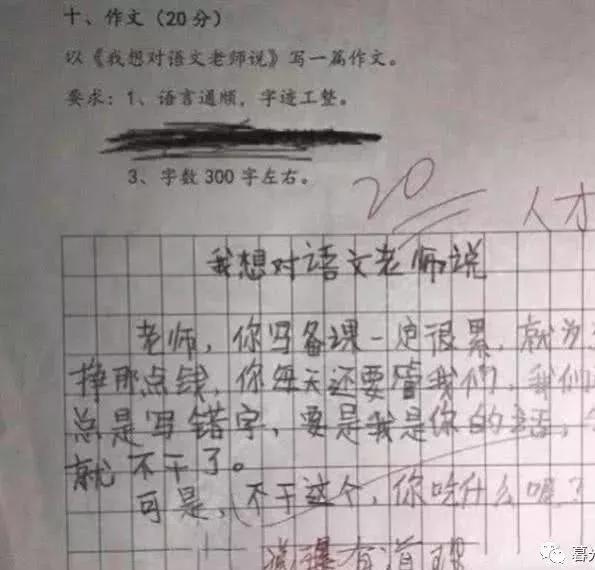 十、作文(20分)
以《我想对语文老师说》写一篇作文。
要求:1、语言通顺,字迹工整。
3、字数300字左右。
20
人才
我想对语文老师说
老师,你写备课一定很累,就为
挣那点钱,你每天还要管我们,我们
总是写错字,要是我是你的话,
就不干了。
可是,不干这个,你吃什么呢?
有道理
暮